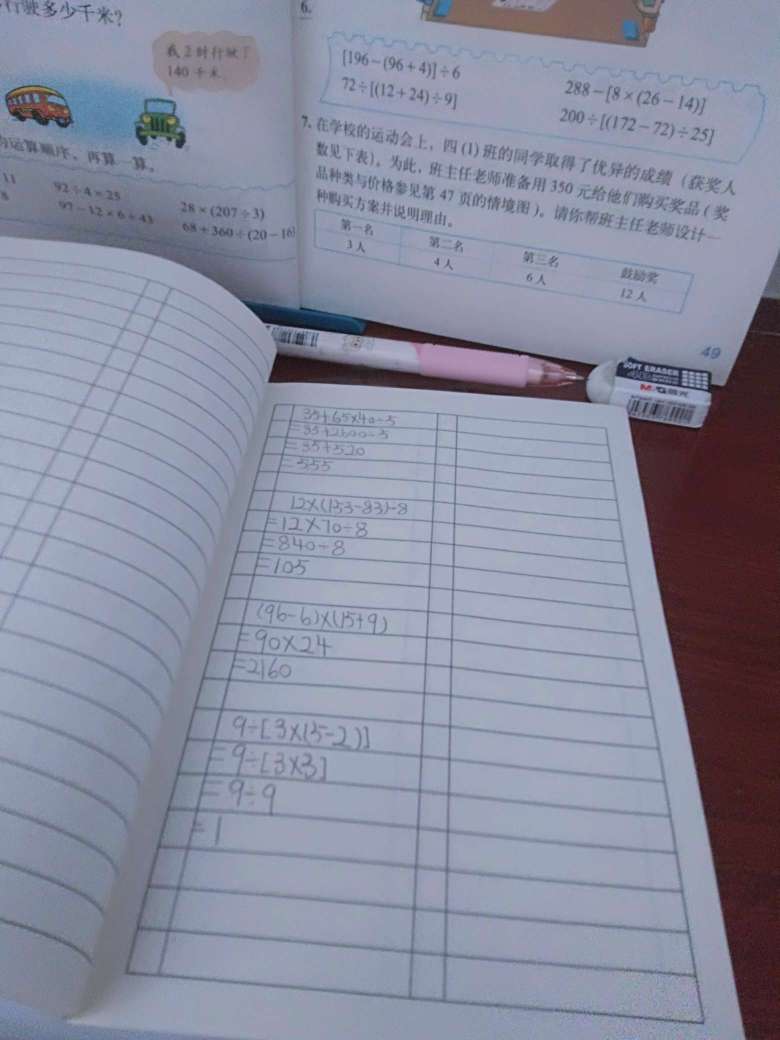 行驶多少千米?
我2时行驶了
140千米。
运算顺序,再算一算。
11
92÷4×25
28×(207÷3)
8
97-12×6+43
68+360÷(20-16)
6.
[196-(96+4)]÷6
288-[8×(26-14)]
72÷[(12+24)÷9]
200÷[(172-72)÷25]
7.在学校的运动会上,四(1)班的同学取得了优异的成绩(获奖人
数见下表),为此,班主任老师准备用350元给他们购买奖品(奖
品种类与价格参见第47页的情境图)。请你帮班主任老师设计一
种购买方案并说明理由。
第一名 第二名 第三名 鼓励奖
3人 4人 6人 12人
49
SOFT ERASER
M&G晨光
35+65×40÷5
=35+2600÷5
=35+520
=555
12×(153-83)÷8
=12×70÷8
=840÷8
=105
(96-6)×(15+9)
=90×24
=2160
9÷[3×(5-2)]
=9÷[3×3]
=9÷9
=1